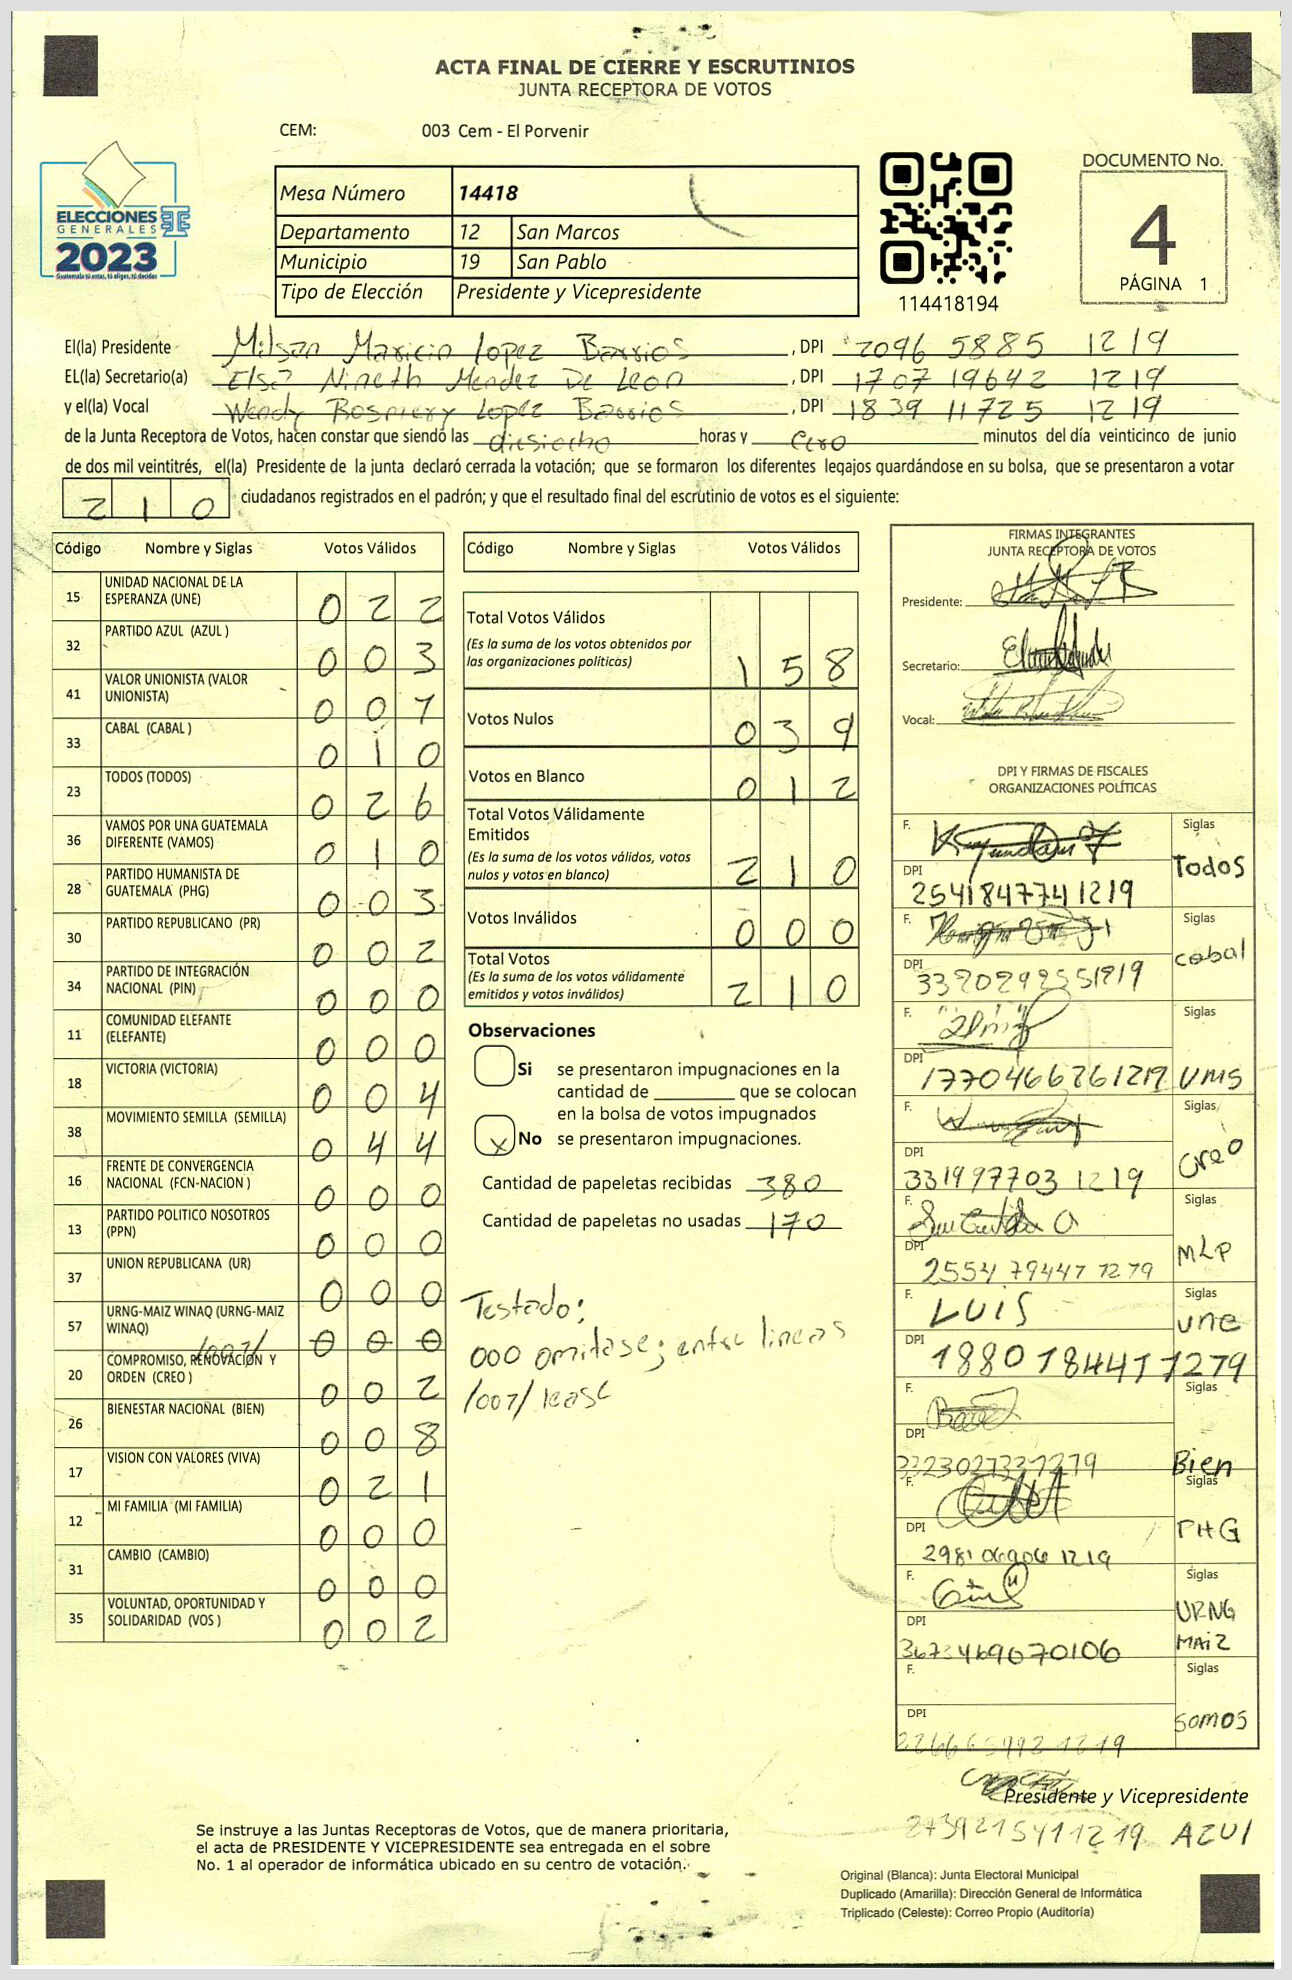 ACTA FINAL DE CIERRE Y ESCRUTINIOS
JUNTA RECEPTORA DE VOTOS
CEM: 003 Cem - El Porvenir
ELECCIONES
GENERALES
2023
Guatemala tú votas, tú eliges, tú decides
Mesa Número 14418
Departamento 12 San Marcos
Municipio 19 San Pablo
Tipo de Elección Presidente y Vicepresidente
114418194
DOCUMENTO No.
4
PÁGINA 1
El(la) Presidente Milson Maricio Lopez Barrios, DPI 2096 5885 1219
EL(la) Secretario(a) Elsa Nineth Mendez De Leon, DPI 1707 19642 1219
y el(la) Vocal Wendy Rosmery Lopez Barrios, DPI 1839 11725 1219
de la Junta Receptora de Votos, hacen constar que siendo las diesiocho horas y cero minutos del día veinticinco de junio
de dos mil veintitrés, el(la) Presidente de la junta declaró cerrada la votación; que se formaron los diferentes legajos guardándose en su bolsa, que se presentaron a votar
210 ciudadanos registrados en el padrón; y que el resultado final del escrutinio de votos es el siguiente:
Código Nombre y Siglas Votos Válidos
15 UNIDAD NACIONAL DE LA ESPERANZA (UNE) 022
32 PARTIDO AZUL (AZUL ) 003
41 VALOR UNIONISTA (VALOR UNIONISTA) 001
33 CABAL (CABAL ) 010
23 TODOS (TODOS) 026
36 VAMOS POR UNA GUATEMALA DIFERENTE (VAMOS) 010
28 PARTIDO HUMANISTA DE GUATEMALA (PHG) 003
30 PARTIDO REPUBLICANO (PR) 002
34 PARTIDO DE INTEGRACIÓN NACIONAL (PIN) 000
11 COMUNIDAD ELEFANTE (ELEFANTE) 000
18 VICTORIA (VICTORIA) 004
38 MOVIMIENTO SEMILLA (SEMILLA) 044
16 FRENTE DE CONVERGENCIA NACIONAL (FCN-NACION ) 000
13 PARTIDO POLITICO NOSOTROS (PPN) 000
37 UNION REPUBLICANA (UR) 000
57 URNG-MAIZ WINAQ (URNG-MAIZ WINAQ) /007/ 000
20 COMPROMISO, RENOVACIÓN Y ORDEN (CREO ) 002
26 BIENESTAR NACIONAL (BIEN) 008
17 VISION CON VALORES (VIVA) 021
12 MI FAMILIA (MI FAMILIA) 000
31 CAMBIO (CAMBIO) 000
35 VOLUNTAD, OPORTUNIDAD Y SOLIDARIDAD (VOS ) 002
Código Nombre y Siglas Votos Válidos
Total Votos Válidos 158
(Es la suma de los votos obtenidos por
las organizaciones políticas)
Votos Nulos 039
Votos en Blanco 012
Total Votos Válidamente
Emitidos 210
(Es la suma de los votos válidos, votos
nulos y votos en blanco)
Votos Inválidos 000
Total Votos 210
(Es la suma de los votos válidamente
emitidos y votos inválidos)
Observaciones
Si se presentaron impugnaciones en la
cantidad de ________ que se colocan
en la bolsa de votos impugnados
x No se presentaron impugnaciones.
Cantidad de papeletas recibidas 380
Cantidad de papeletas no usadas 170
Testado:
000 omitase; entre lineas
/007/ lease
FIRMAS INTEGRANTES
JUNTA RECEPTORA DE VOTOS
Presidente:
Secretario:
Vocal:
DPI Y FIRMAS DE FISCALES
ORGANIZACIONES POLÍTICAS
F. Siglas Todos
DPI 2541847741219
F. Siglas cabal
DPI
F. Siglas VMS
DPI 1770466261219
F. Siglas Creo
DPI 331997703 1219
F. Siglas MLP
DPI 2554 79447 1219
F. LUIS Siglas une
DPI 1880184471279
F. Siglas Bien
DPI
F. Siglas PHG
DPI 2981 06906 1219
F. Siglas URNG MAIZ
DPI 3673469670106
F. Siglas somos
DPI
Presidente y Vicepresidente
2739215411219 AZUl
Se instruye a las Juntas Receptoras de Votos, que de manera prioritaria,
el acta de PRESIDENTE Y VICEPRESIDENTE sea entregada en el sobre
No. 1 al operador de informática ubicado en su centro de votación.
Original (Blanca): Junta Electoral Municipal
Duplicado (Amarilla): Dirección General de Informática
Triplicado (Celeste): Correo Propio (Auditoría)